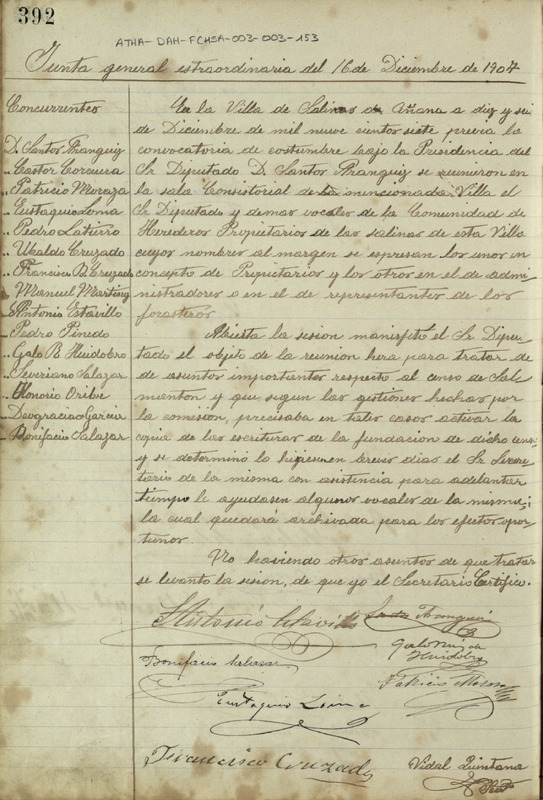 392
ATHA-DAH-FCHSA-003-003-153
Junta general estraordinaria del 16 de Diciembre de 1907
Concurrentes
D. Santos Aranguiz
„ Castor Corcuera
„ Patricio Moraza
„ Eustaquio Loma
„ Pedro
„ Ubaldo Cruzado
„ Francisco B. Cruzado
„ Manuel Martinez
„ Antonio Estavillo
„ Pedro Pinedo
„ Galo B. Huidobro
„ Severiano Salazar
„ Honorio Oribe
„ Deogracias Garcia
„ Bonifacio Salazar
En la Villa de Salinas de Añana a diez y seis
de Diciembre de mil nuve cientos siete previa la
convocatoria de costumbre bajo la Presidencia del
Sr Diputado D. Santos Aranguiz se reunieron en
la sala Consistorial de la mencionada Villa el
Sr Diputado y demas vocales de la Comunidad de
Herederos Propietarios de las salinas de esta Villa
cuyos nombres al margen se espresan los unos en
concepto de Propietarios y los otros en el de admi-
nistradores o en el de representantes de los
forasteros.
Abierta la sesion manisfetó el Sr Dipu-
tado el objeto de la reunion hera para tratar de
de asuntos importantes respecto al censo de Sal-
manton y que segun las gestiones hechas por
la comision, precisaba en tales casos activar la
copia de las escrituras de la fundacion de dicho censo
y se determinó lo hiciese en breves dias el Sr Secre-
tario de la misma con asistencia para adelantar
tiempo le ayudasen algunos vocales de la misma;
la cual quedará archivada para los efectos opor-
tunos.
No haviendo otros asuntos de que tratar
se levanto la sesion, de que yo el Secretario Certifico.
Antonio Santos Aranguiz
Galo Ruiz de
Huidobro
Bonifacio Salazar
Patricio Moraza
Eustaquio Loma
Francisco Cruzado
Vidal Quintana
Srio